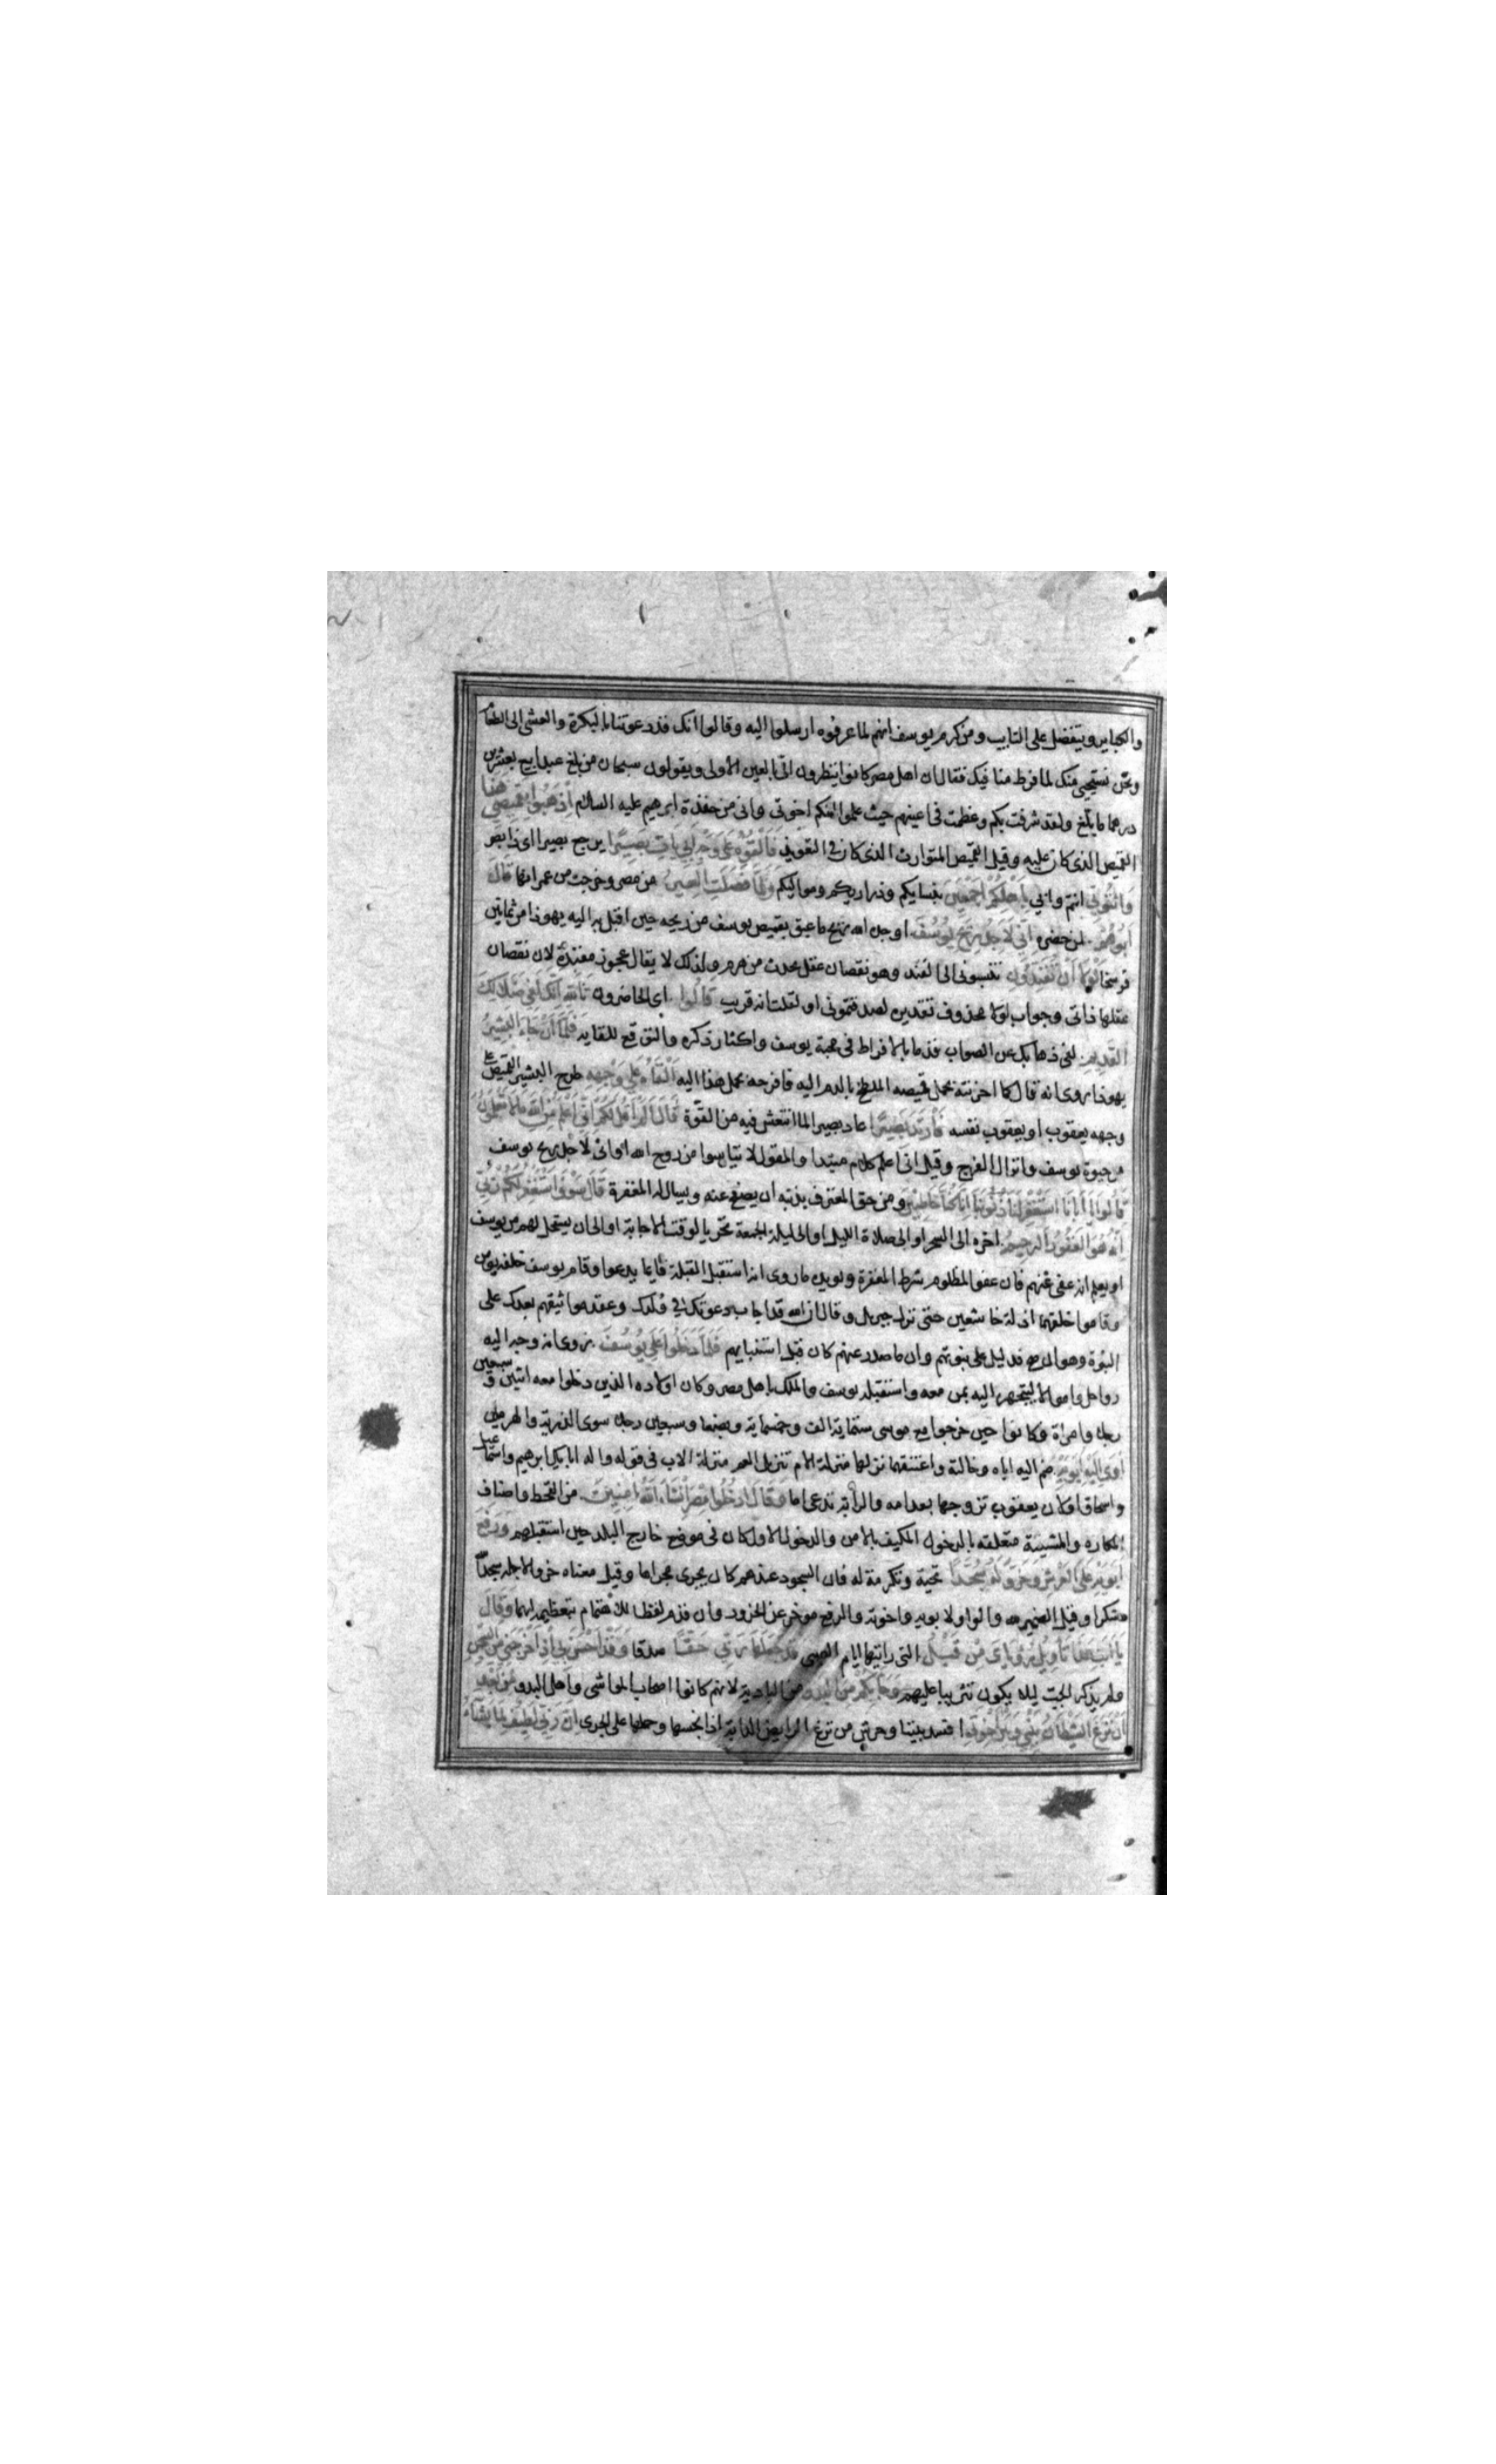 والكباير ويتفضل على التايب ومن كرم يوسف انهم لما عرفوه ارسلوا اليه وقالوا انك قد دعوتنا بالبكرة والعشى الى الطعام
ونحن نستحيى منك لما فرط منا فيك فقال ان اهل مصر كانوا ينظرون الى بالعين الاولى ويقولون سبحان من بلغ عبدا بيع بعشرين
درهما ما بلغ ولقد شرفت بكم وعظمت فى اعينهم حيث علموا انكم اخوتى وانى من حفدة ابرهيم عليه السلام اذهبوا بقميصي هذا
القميص الذى كان عليه وقيل القميص المتوارث الذى كان فى التعويذ فالقوه على وجه ابي يات بصيرا يرجع بصيرا اى ذا بصر
واتوني انتم وابي باهلكم اجمعين بنسايكم وذراريكم ومواليكم ولما فصلت العير من مصر وخرجت من عمرانها قال
ابوهم لمن حضره اني لاجد ريح يوسف اوجده الله ريح ما عبق بقميص يوسف من ريحه حين اقبل به اليه يهوذا من ثمانين
فرسخا لولا ان تفندون تنسبونى الى الفند وهو نقصان عقل يحدث من هرم ولذلك لا يقال عجوز مفندة لان نقصان
عقلها ذاتى وجواب لولا محذوف تقديره لصدقتمونى او لقلت انه قريب قالوا اى الحاضرون تالله انك لفي ضلالك
القديم لفى ذهابك عن الصواب قدما بالافراط فى محبة يوسف واكثار ذكره والتوقع للقايه فلما ان جاء البشير
يهوذا روى انه قال كما احزنته بحمل قميصه الملطخ بالدم اليه فافرحه بحمل هذا اليه القاه على وجهه طرح البشير القميص على
وجهه يعقوب او يعقوب نفسه فارتد بصيرا عاد بصيرا لما انتعش فيه من القوة قال الم اقل لكم اني اعلم من الله ما لا تعلمون
من حيوة يوسف وانزال الفرج وقيل انى اعلم كلام مبتدا والمقول لا تيأسوا من روح الله او انى لاجد ريح يوسف
قالوا يا ابانا استغفر لنا ذنوبنا انا كنا خاطئين ومن حق المعترف بذنبه ان يصفح عنه ويسال له المغفرة قال سوف استغفر لكم ربي
انه هو الغفور الرحيم اخره الى السحر او الى صلاة الليل او الى ليلة الجمعة تحريا لوقت الاجابة او الى ان يستحل لهم من يوسف
او يعلم انه عفى عنهم فان عفو المظلوم شرط المغفرة ويويده ما روى انه استقبل القبلة قايما يدعوا وقام يوسف خلفه يومن
وقاموا خلفهما اذلة خاشعين حتى نزل جبريل وقال ان الله قد اجاب دعوتك فى ولدك وعقد مواثيقهم بعدك على
النبوة وهو ان صح فدليل على نبوتهم وان ما صدر عنهم كان قبل استنبايهم فلما دخلوا على يوسف روى انه وجه اليه
رواحل واموالا ليتجهز اليه بمن معه واستقبله يوسف والملك باهل مصر وكان اولاده الذين دخلوا معه اثنين و سبعين
رجلا وامراة وكانوا حين خرجوا مع موسى ستماية الف وخمسماية وبضعا وسبعين رجلا سوى الذرية والهرمى
اوى اليه ابويه ضم اليه اباه وخالته واعتنقهما نزلها منزلة الام تنزيل العم منزلة الاب فى قوله واله ابائك ابرهيم واسماعيل
واسحاق او لان يعقوب تزوجها بعد امه والرابة تدعى اما وقال ادخلوا مصر ان شاء الله امنين من القحط واصناف
المكاره والمشيئة متعلقه بالدخول المكيف بالامن والدخول الاول كان فى موضع خارج البلد حين استقبلهم ورفع
ابويه على العرش وخروا له سجدا تحية وتكرمة له فان السجود عندهم كان يجرى مجراها وقيل معناه خروا لاجله سجدا
شكرا وقيل الضمير لله والواو لا بويه واخوته والرفع موخر عن الخرور وان قدم لفظا للاهتمام بتعظيمه لهما وقال
يا ابت هذا تاويل رؤياي من قبل التى رايتها ايام الصبى قد جعلها ربي حقا صدقا وقد احسن بي اذ اخرجني من السجن
ولم يذكر الجب ليلا يكون تثريبا عليهم وجاء بكم من البدو من البادية لانهم كانوا اصحاب المواشى واهل البدو من بعد
ان نزغ الشيطان بيني وبين اخوتي افسد بيننا وحرش من نزغ الرايض الدابة اذا نخسها وحملها على الجرى ان ربي لطيف لما يشاء